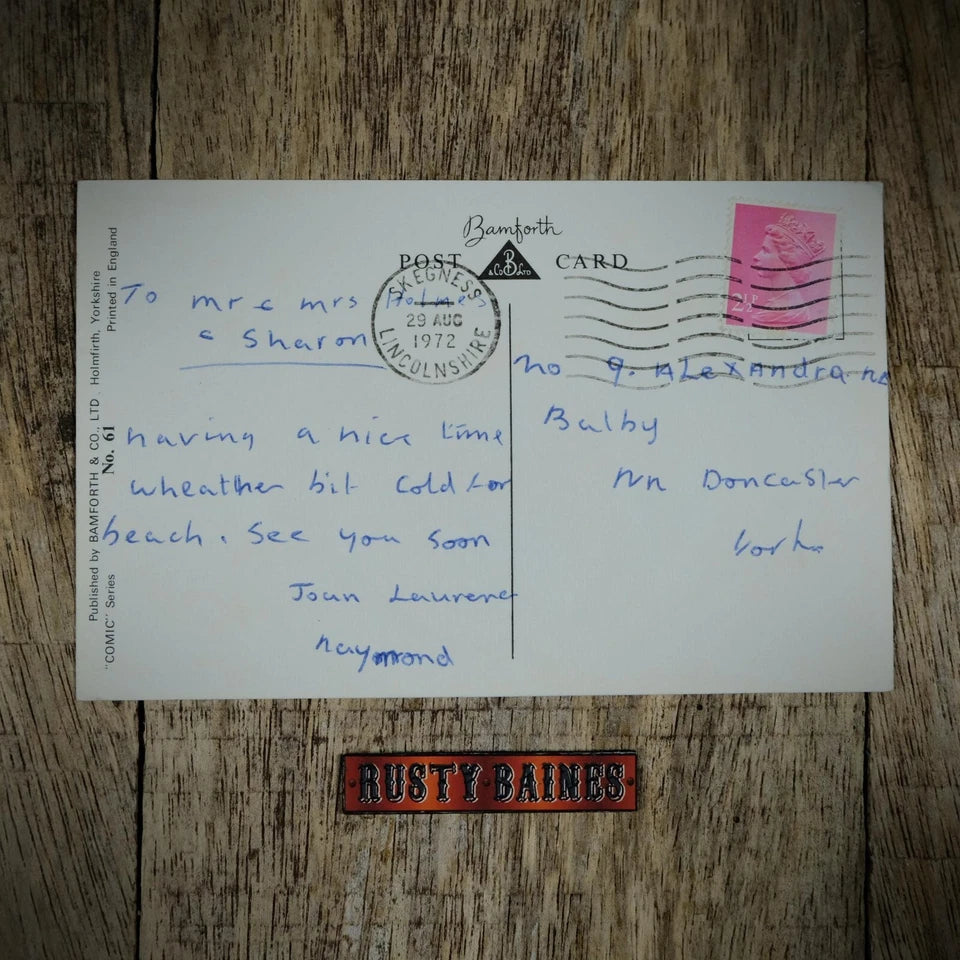 Bamforth
POST CARD
& Co B LTD
SKEGNESS
29 AUG
1972
LINCOLNSHIRE
2½P
Published by BAMFORTH & CO., LTD. Holmfirth, Yorkshire
"COMIC" Series No. 61 Printed in England
To mr & mrs Holmes
& Sharon
having a nice time
wheather bit cold for
beach. see you soon
Joan Laurence
Raymond
no 9. ALexAndra Rd
Balby
Nr Doncaster
Yorks
RUSTY BAINES